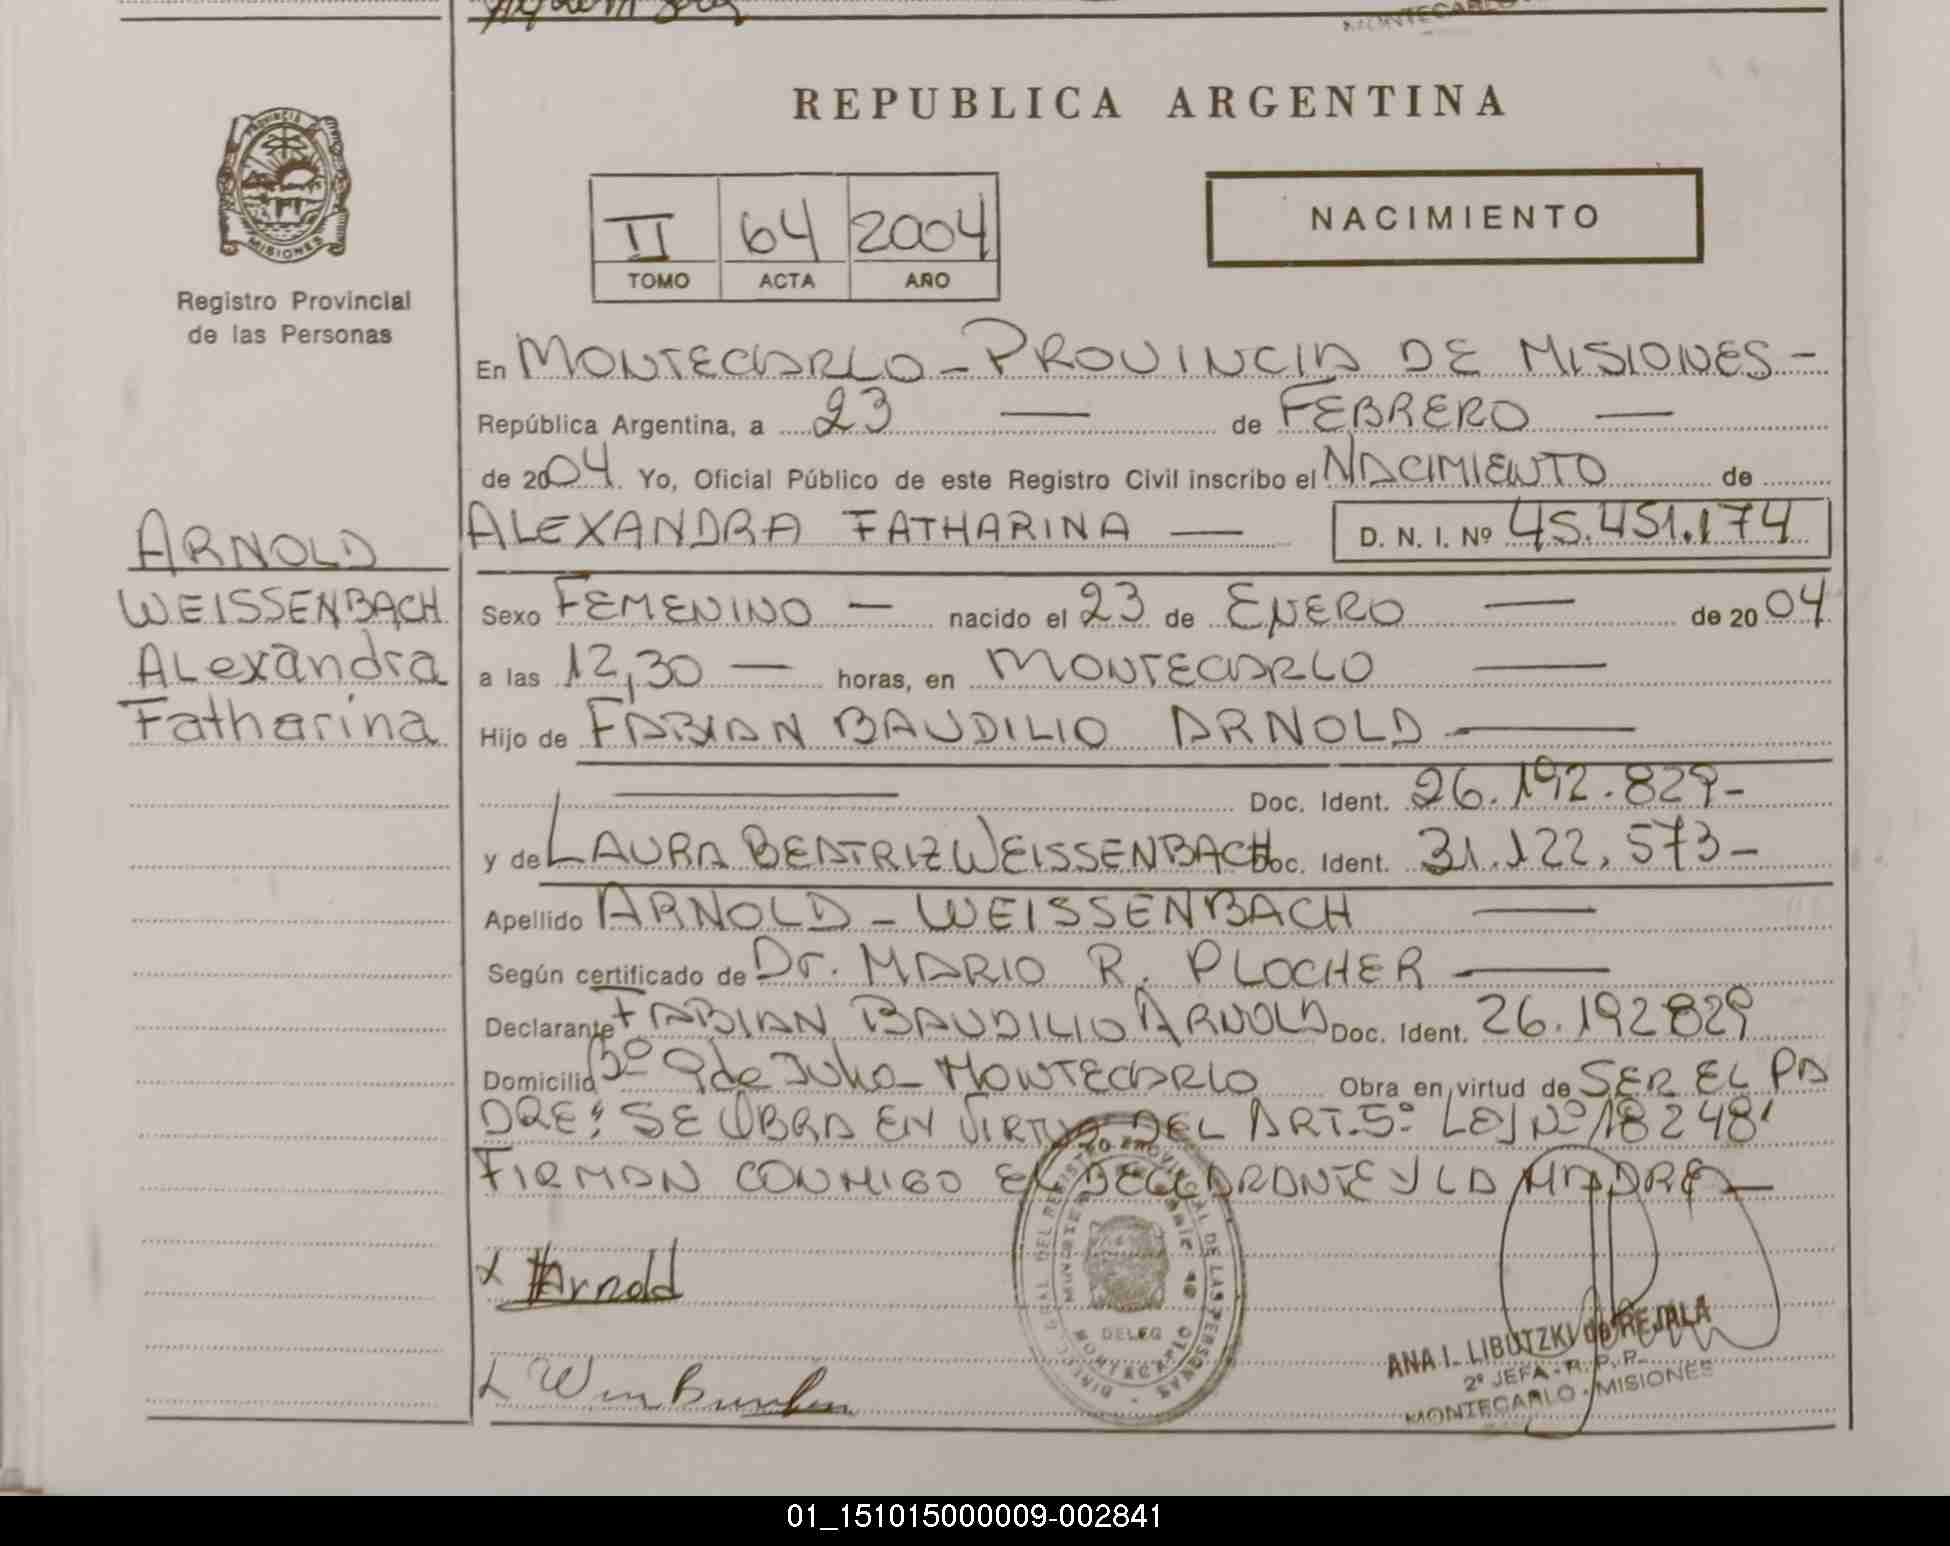 MONTECARLO
REPUBLICA ARGENTINA
PROVINCIA
MISIONES
Registro Provincial
de las Personas
II 64 2004
TOMO ACTA AÑO
NACIMIENTO
En MONTECARLO - PROVINCIA DE MISIONES -
República Argentina, a 23 — de FEBRERO —
de 2004. Yo, Oficial Público de este Registro Civil inscribo el NACIMIENTO de
ALEXANDRA FATHARINA — D. N. I. Nº 45.451.174
ARNOLD
WEISSENBACH
Alexandra
Fatharina
Sexo FEMENINO — nacido el 23 de ENERO — de 2004
a las 12,30 — horas, en MONTECARLO —
Hijo de FABIAN BAUDILIO ARNOLD —
— Doc. Ident. 26.192.829-
y de LAURA BEATRIZ WEISSENBACH Doc. Ident. 31.122.573-
Apellido ARNOLD - WEISSENBACH —
Según certificado de Dr. MARIO R. PLOCHER —
Declarante FABIAN BAUDILIO ARNOLD Doc. Ident. 26.192829
Domicilio Bº 9 de Julio - MONTECARLO Obra en virtud de SER EL PA
DRE; SE OBRA EN VIRTUD DEL ART. 5º LEY Nº 18248'
FIRMAN CONMIGO EL DECLARANTE Y LA MADRE —
x Arnold
DELEG
MONTECARLO
ANA I. LIBUTZKI de REJALA
2º JEFA - R. P. P.
MONTECARLO - MISIONES
01_151015000009-002841